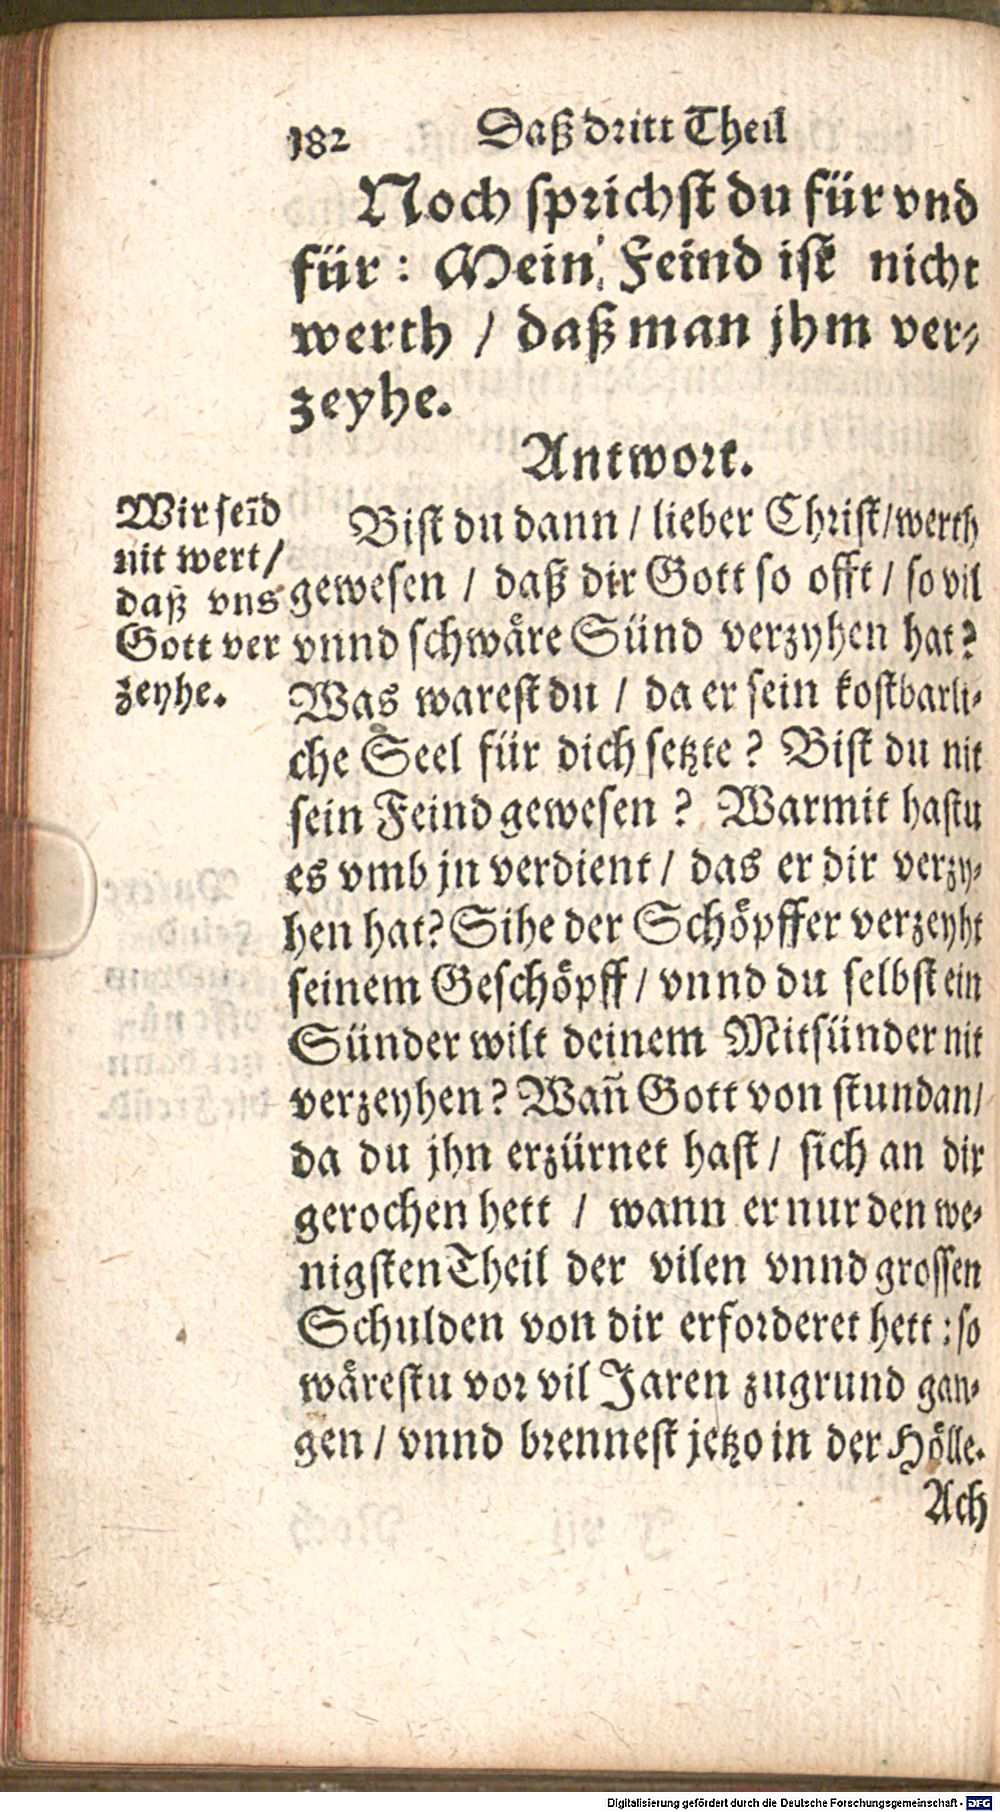 182 Daß dritt Theil
Noch sprichst du für vnd
für: Mein Feind ist nicht
werth / daß man jhm ver⸗
zeyhe.
Antwort.
Wir seīd
nit wert /
daß vns
Gott ver
zeyhe.
Bist du dann / lieber Christ / werth
gewesen / daß dir Gott so offt / so vil
vnnd schwåre Sünd verzyhen hat?
Was warest du / da er sein kostbarli⸗
che Seel für dich setzte? Bist du nit
sein Feind gewesen? Warmit hastu
es vmb jn verdient / das er dir verzy⸗
hen hat? Sihe der Schöpffer verzeyht
seinem Geschöpff / vnnd du selbst ein
Sünder wilt deinem Mitsünder nit
verzeyhen? Wañ Gott von stundan /
da du jhn erzürnet hast / sich an dir
gerochen hett / wann er nur den we⸗
nigsten Theil der vilen vnnd grossen
Schulden von dir erforderet hett : so
wårestu vor vil Jaren zugrund gan⸗
gen / vnnd brennest jetzo in der Hölle.
Ach
Digitalisierung gefördert durch die Deutsche Forschungsgemeinschaft - DFG